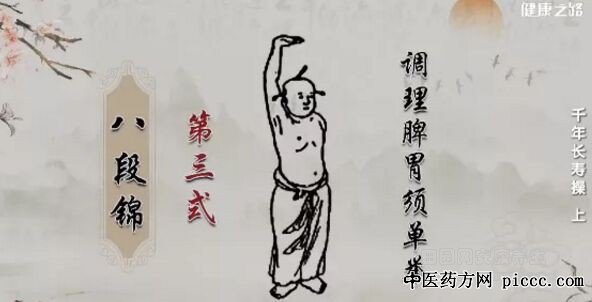 健康之路
八段锦
第三式
调理脾胃须单举
千年长寿操 上
中医药方网 piccc.com